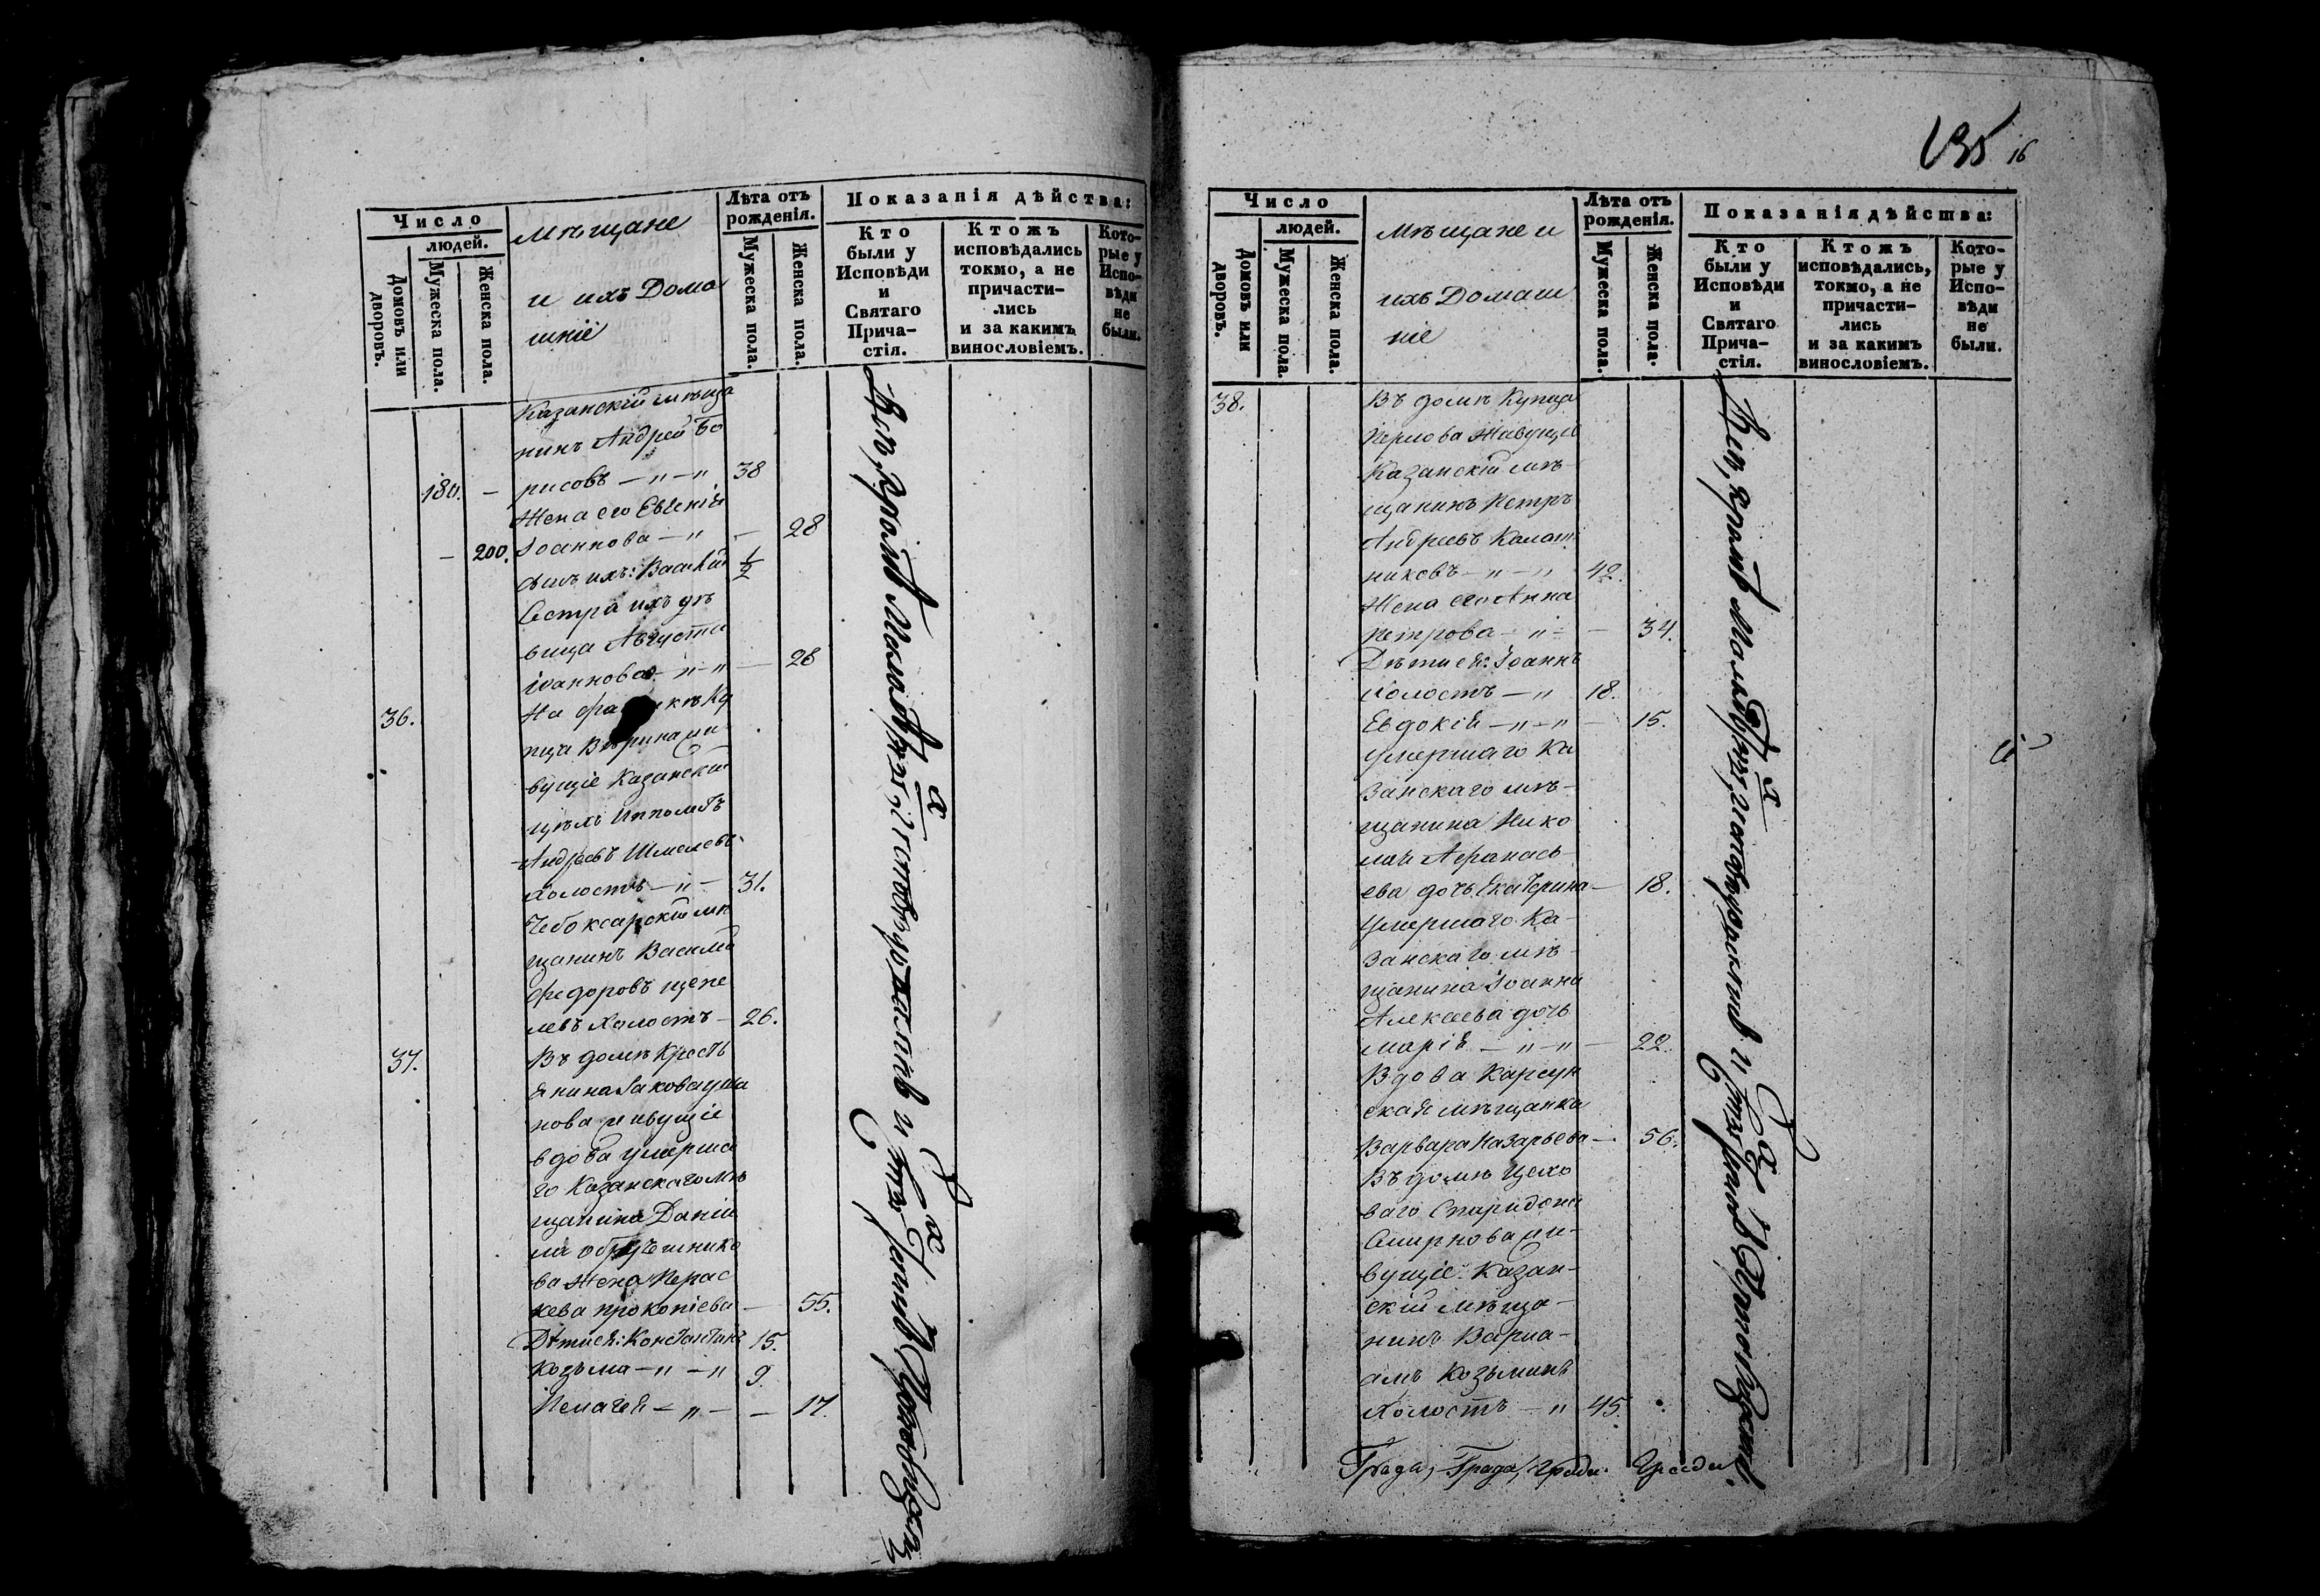 Число
людей.
Домовъ или дворовъ.
Мужеска пола.
Женска пола.
Мѣщане
и ихъ Дома
шніе
Лѣта отъ
рожденія.
Мужеска пола.
Женска пола.
Показанія дѣйства:
Кто
были у
Исповѣди
и
Святаго
Прича-
стія.
Ктожъ
исповѣдались
токмо, а не
причасти-
лись
и за какимъ
винословіемъ.
Кото-
рые у
Испо-
вѣди
не
были.
Казанскій мѣща
нинъ Андрей Бо
180. – рисовъ – „ – „ 38
Жена его Евгенія
– 200. Іоаннова – „ – 28
сынъ ихъ: Василій ½
Сестра ихъ дѣ
вица Августа
Іоаннова – „ – „ – 28
36. На фа
пца жи
вущіе Казанскій
цѣхъ Ипполитъ
Андреевъ Шмелевъ
холостъ – „ – 31.
Чебоксарскій мѣ
щанинъ Василій
Федоровъ щепе
левъ Холостъ – 26.
37. Въ домѣ Кресть
янина Іакова
нова живущіе
вдова умерша
го Казанскаго мѣ
щанина Даніи
ла Обручешнико
ва Жена Парас
кева прокопіева – 55.
Дѣти ея: Константинъ 15.
Козьма – „ – „ 9.
Пелагея – „ – – 17.
Всѣ, кромѣ малолѣтнихъ, исповѣдались и Св. Таинъ причастились
135 16
Число
людей.
Домовъ или дворовъ.
Мужеска пола.
Женска пола.
Мѣщане и
ихъ Домаш
ніе
Лѣта отъ
рожденія.
Мужеска пола.
Женска пола.
Показанія дѣйства:
Кто
были у
Исповѣди
и
Святаго
Прича-
стія.
Ктожъ
исповѣдались,
токмо, а не
причасти-
лись
и за какимъ
винословіемъ.
Кото-
рые у
Испо-
вѣди
не
были.
38. Въ домѣ Купца
Перлова Живущіе
Казанскій мѣ-
щанинъ Петръ
Андреевъ Калаш
никовъ – „ – „ 42.
Жена его Анна
Петрова – „ – – 34.
Дѣти ея: Іоаннъ
холостъ – „ 18.
Евдокія – „ – „ – 15.
Умершаго Ка
занскаго мѣ-
щанина Нико
лая Афанась-
ева дочь Екатерина – 18.
Умершаго Ка-
занскаго мѣ-
щанина Іоанна
Алексѣева дочь
Марія – „ – „ – 22.
Вдова Карсун
ская мѣщанка
Варвара Назарьева – 56.
Въ домѣ Цехо
ваго Спиридона
Смирнова жи-
вущіе: Казан-
скій мѣща-
нинъ Варла-
амъ Козьминъ
Холостъ – „ 45.
Града, Града, Града Града